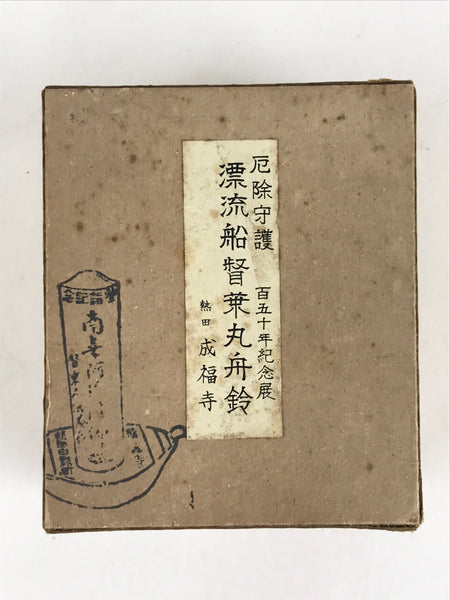 厄除守護 百五十年紀念展
漂流船督乗丸舟鈴
熱田 成福寺
南無阿